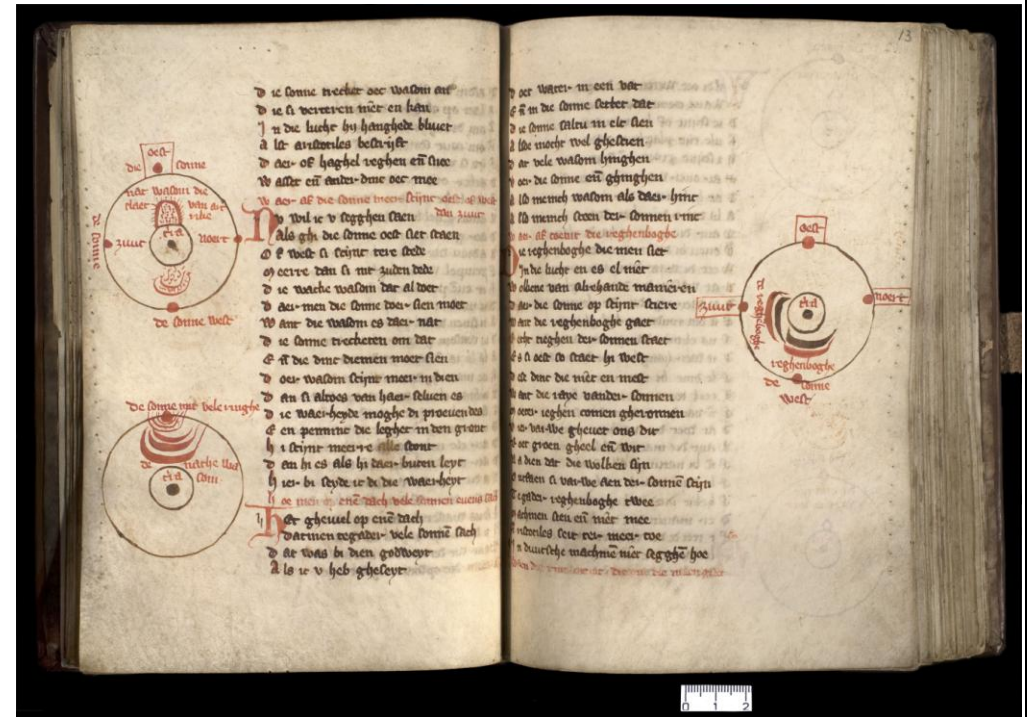 oest
die sonne
nat wasom die
claer van art
rike
ertA
zuut
noert
de sonne
de sonne west
De sonne mit vele ringhe
de nathe wa
som
ertA
D ie sonne trecket oec wasom an
D ie si verteren niet en kan
I n die lucht hi hanghede bliuet
A lst aristotiles bescrijft
D aer of haghel reghen eñ snee
W asset eñ ander dinc oec mee
W aer af die sonne meer scijnt oest of west
dan zuut
N v wil ic v segghen saen
Als ghi die sonne oest siet staen
O f west si scijnt tere stede
M eerre dan si nut zuden dede
D ie wache wasom dat al doet
D aer men die sonne doer sien moet
W ant die wasom es daer nat
D ie sonne trecketen om dat
E ñ die dinc diemen moet sien
D oer wasom scijnt meer in dien
D an si altoes van haer seluen es
D ie waerheyde moghe di proeuen des
E en pennine die leghet in den gront
H i scijnt meerre alle stont
D an hi es als hi daer buten leyt
H ier bi seyde ic di die waerheyt
H oe men op enē dach vele sonnen
H et gheuiel op enē dach
Datmen tegader vele sonnē sach
D at was bi dien godweyt
A ls ic v heb gheseyt
13
D oet water in een vat
E ñ in die sonne settet dat
D ie sonne saltu in elc sien
A lsoe mocht wel ghescien
D at vele wasom hinghen
V oer die sonne eñ ghinghen
A lso menich wasom als daer hinc
A lso menich scoen der sonnen rinc
W an af coemt die reghenboghe
D ie reghenboghe die men siet
In die lucht en es el niet
W olkene van alrehande manieren
D aer die sonne op scijnt sciere
W ant die reghenboghe gaet
E cht ieghen der sonnen staet
E s si oest so staet hi west
D it dinc die niet en mest
W ant die raye vander sonnen
M oeter ieghen comen gheronnen
D ie varwe gheuet ons dit
R oet groen gheel eñ wit
N a dien dat die wolken sijn
O ntfaen si varwe aen der sonnē scijn
T egader reghenboghe twee
M achmen sien eñ niet mee
A ristotiles seit der meer toe
I n duutsche machmē niet segghē hoe
oest
zuut
noert
ertA
de reghenboghe
reghenboghe
de sonne
west
0 1 2